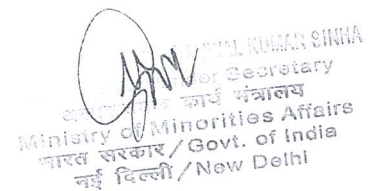 KUMAR SINHA
Secretary
कार्य मंत्रालय
Ministry of Minorities Affairs
भारत सरकार / Govt. of India
नई दिल्ली / New Delhi